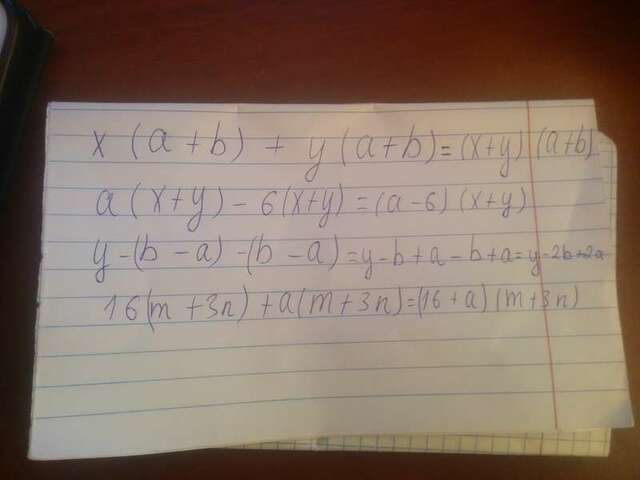 x (a+b) + y (a+b) = (x+y) (a+b)
a (x+y) - 6(x+y) = (a-6) (x+y)
y - (b - a) - (b - a) = y - b + a - b + a = y - 2b + 2a
16(m + 3n) + a(m + 3n) = (16 + a) (m + 3n)